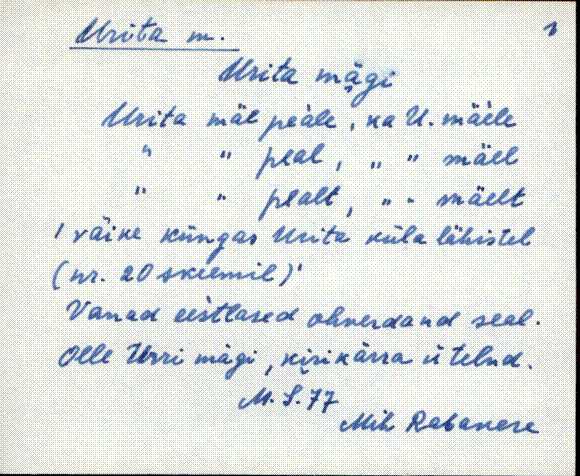 Urita m.
Urita mägi
Urita mäe peäle, ka U. mäele
" " peal, " " mäel
" " pealt, " " mäelt
' väike küngas Urita küla lähistel
(nr. 20 skeemil)'
Vanad eestlased ohverdand seal.
Olle Urri mägi, kirikärra ütelnd.
M. S. 77
Mih Rabanere